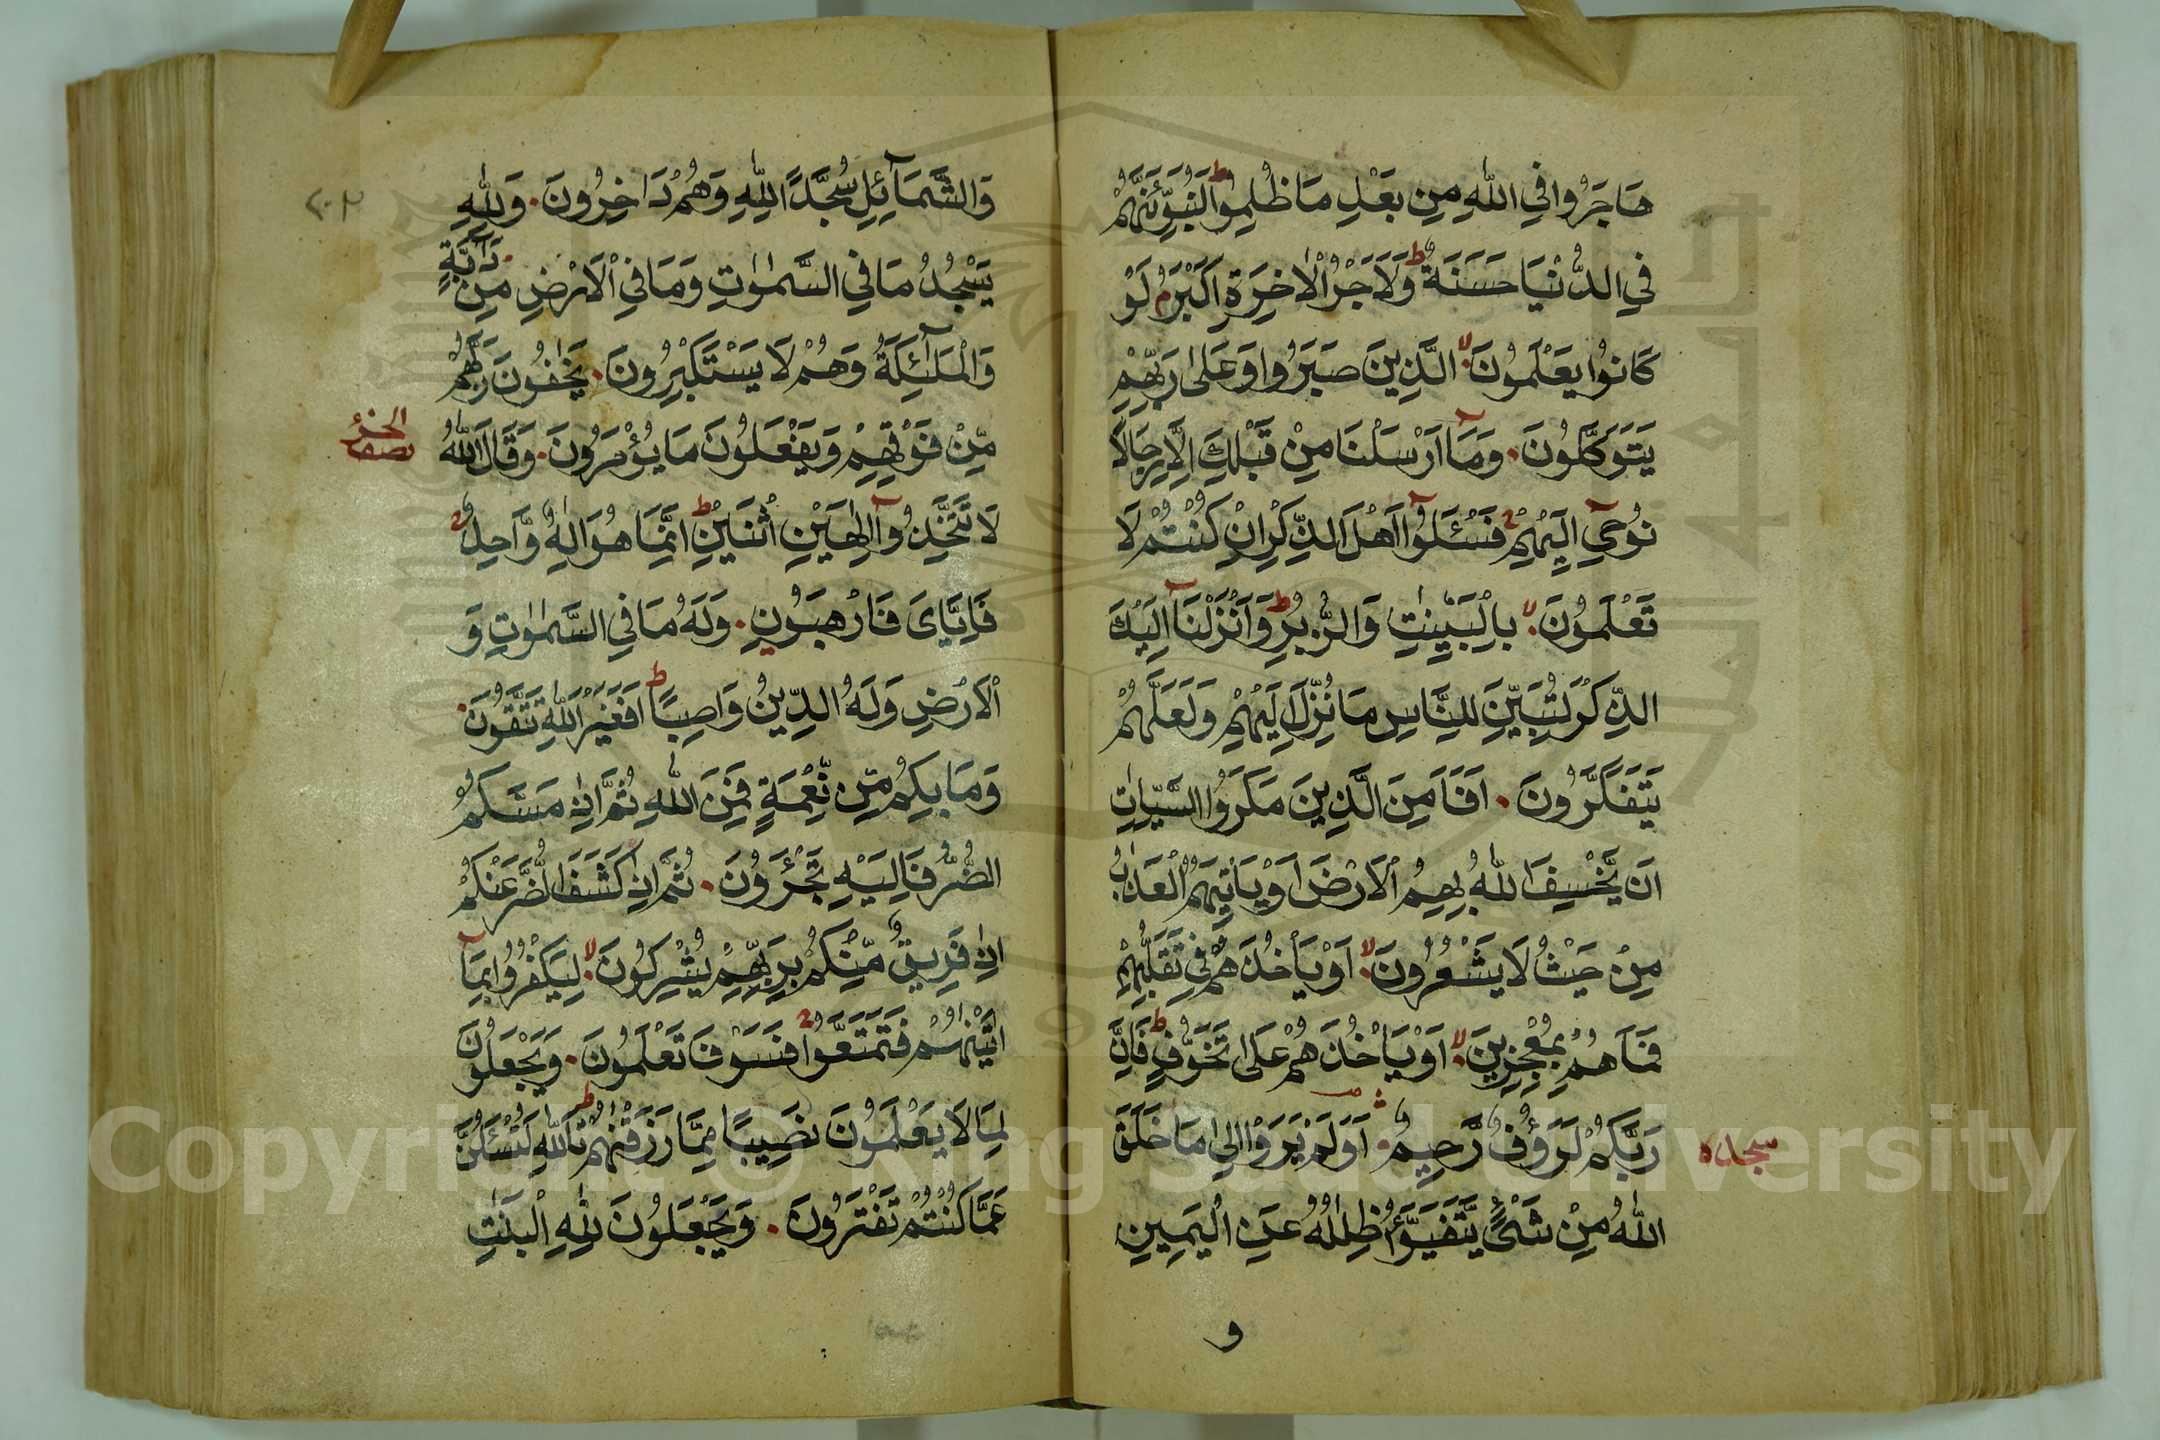 هَاجَرُوا فِي اللّٰهِ مِنْ بَعْدِ مَا ظُلِمُوا لَنُبَوِّئَنَّهُمْ
فِي الدُّنْيَا حَسَنَةً ط وَلَاَجْرُ الْاٰخِرَةِ اَكْبَرُ م لَوْ
كَانُوا يَعْلَمُونَ لا الَّذِينَ صَبَرُوا وَعَلٰى رَبِّهِمْ
يَتَوَكَّلُونَ . وَمَآ اَرْسَلْنَا مِنْ قَبْلِكَ اِلَّا رِجَالًا
نُوحِي اِلَيْهِمْ فَسْئَلُوٓا اَهْلَ الذِّكْرِ اِنْ كُنْتُمْ لَا
تَعْلَمُونَ لا بِالْبَيِّنٰتِ وَالزُّبُرِ ط وَاَنْزَلْنَآ اِلَيْكَ
الذِّكْرَ لِتُبَيِّنَ لِلنَّاسِ مَا نُزِّلَ اِلَيْهِمْ وَلَعَلَّهُمْ
يَتَفَكَّرُونَ . اَفَاَمِنَ الَّذِينَ مَكَرُوا السَّيِّاٰتِ
اَنْ يَّخْسِفَ اللّٰهُ بِهِمُ الْاَرْضَ اَوْ يَاْتِيَهُمُ الْعَذَابُ
مِنْ حَيْثُ لَا يَشْعُرُونَ لا اَوْ يَاْخُذَهُمْ فِي تَقَلُّبِهِمْ
فَمَا هُمْ بِمُعْجِزِينَ لا اَوْ يَاْخُذَهُمْ عَلٰى تَخَوُّفٍ ط فَاِنَّ
رَبَّكُمْ لَرَؤُفٌ رَّحِيمٌ . اَوَلَمْ يَرَوْا اِلٰى مَا خَلَقَ
سجده
اللّٰهُ مِنْ شَيْءٍ يَّتَفَيَّؤُا ظِلٰلُهُ عَنِ الْيَمِينِ
و
٢٠٣
وَالشَّمَآئِلِ سُجَّدًا لِلّٰهِ وَهُمْ دَاخِرُونَ . وَلِلّٰهِ
يَسْجُدُ مَا فِي السَّمٰوٰتِ وَمَا فِي الْاَرْضِ مِنْ دَآبَّةٍ
وَالْمَلٰٓئِكَةُ وَهُمْ لَا يَسْتَكْبِرُونَ . يَخَافُونَ رَبَّهُمْ
مِّنْ فَوْقِهِمْ وَيَفْعَلُونَ مَا يُؤْمَرُونَ . وَقَالَ اللّٰهُ
نصف الجزء
لَا تَتَّخِذُوٓا اِلٰهَيْنِ اثْنَيْنِ ط اِنَّمَا هُوَ اِلٰهٌ وَّاحِدٌ
فَاِيَّايَ فَارْهَبُونِ . وَلَهُ مَا فِي السَّمٰوٰتِ وَ
الْاَرْضِ وَلَهُ الدِّينُ وَاصِبًا ط اَفَغَيْرَ اللّٰهِ تَتَّقُونَ .
وَمَا بِكُمْ مِّنْ نِّعْمَةٍ فَمِنَ اللّٰهِ ثُمَّ اِذَا مَسَّكُمُ
الضُّرُّ فَاِلَيْهِ تَجْئَرُونَ . ثُمَّ اِذَا كَشَفَ الضُّرَّ عَنْكُمْ
اِذَا فَرِيقٌ مِّنْكُمْ بِرَبِّهِمْ يُشْرِكُونَ لا لِيَكْفُرُوا بِمَآ
اٰتَيْنٰهُمْ فَتَمَتَّعُوا فَسَوْفَ تَعْلَمُونَ . وَيَجْعَلُونَ
لِمَا لَا يَعْلَمُونَ نَصِيبًا مِّمَّا رَزَقْنٰهُمْ ط تَاللّٰهِ لَتُسْئَلُنَّ
عَمَّا كُنْتُمْ تَفْتَرُونَ . وَيَجْعَلُونَ لِلّٰهِ الْبَنٰتِ
Copyright © King Saud University